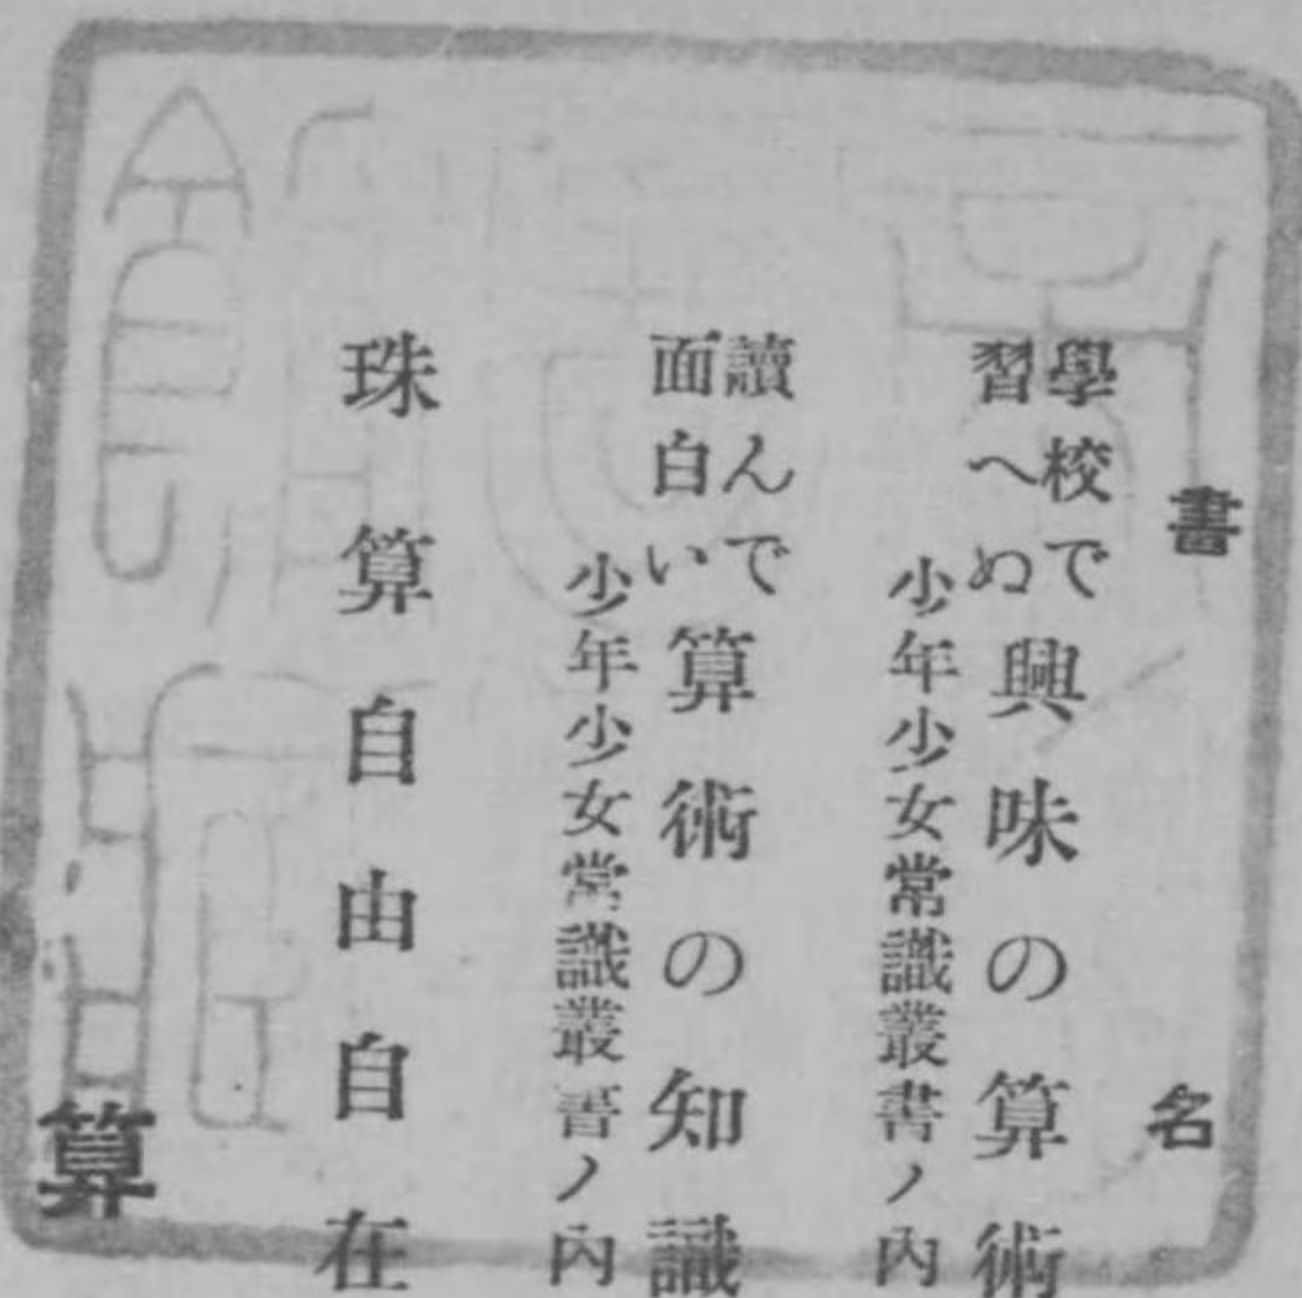 書名
學校で
習へぬ
興味の算術
少年少女常識叢書ノ內
讀んで
面白い
算術の知識
少年少女常識叢書ノ內
珠算自由自在
算